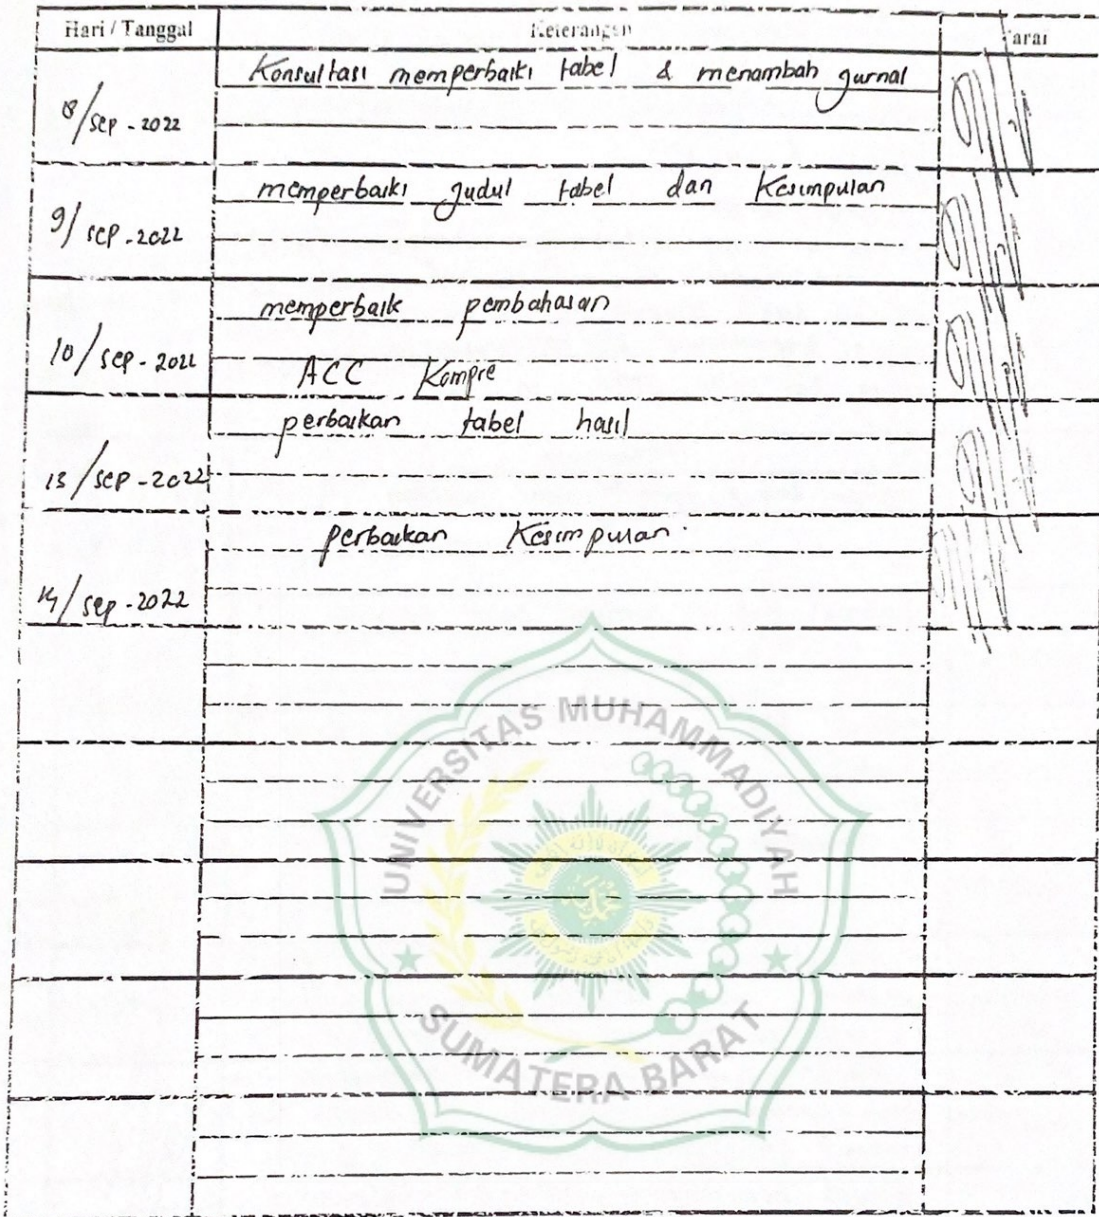 Hari / Tanggal Keterangan Paraf
Konsultasi memperbaiki tabel & menambah jurnal
8/sep - 2022
memperbaiki judul tabel dan Kesimpulan
9/sep - 2022
memperbaik pembahasan
10/sep - 2022
ACC Kompre
perbaikan tabel hasil
13/sep - 2022
perbaikan Kesimpulan
14/sep - 2022
UNIVERSITAS MUHAMMADIYAH
SUMATERA BARAT